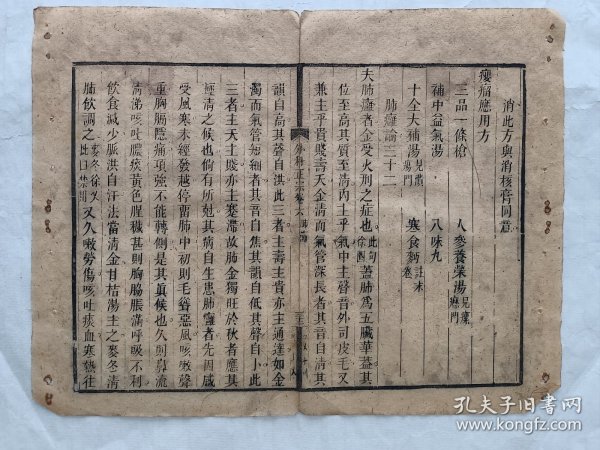 消此方與消核膏同意
癭瘤應用方
三品一條槍　人參養榮湯見瘰癧門
補中益氣湯　八味丸
十全大補湯見潰瘍門　寒食麪註末卷
肺癰論三十二
夫肺癰者金受火刑之症也此句徐四蓋肺為五臟華蓋其
位至高其質至清內主乎氣中主聲音外司皮毛又
兼主乎貴賤壽夭金清而氣管深長者其音自清其
韻自高其聲自洪此三者主壽主貴亦主通達如金
濁而氣管短細者其音自焦其韻自低其聲自小此
三者主夭主賤亦主蹇滯故肺金獨旺於秋者應其
輕清之候也倘有所尅其病自生患肺癰者先因感
受風寒未經發越停留肺中初則毛聳惡風咳嗽聲
重胸膈隱痛項強不能轉側是其眞候也久則鼻流
清涕咳吐膿痰黃色腥穢甚則胸脇脹滿呼吸不利
飲食減少脈洪自汗法當清金甘桔湯主之麥冬清
肺飲調之麥冬徐又此口禁閉又久嗽勞傷咳吐痰血寒熱往
外科正宗卷六
孔夫子旧书网
www.kongfz.com